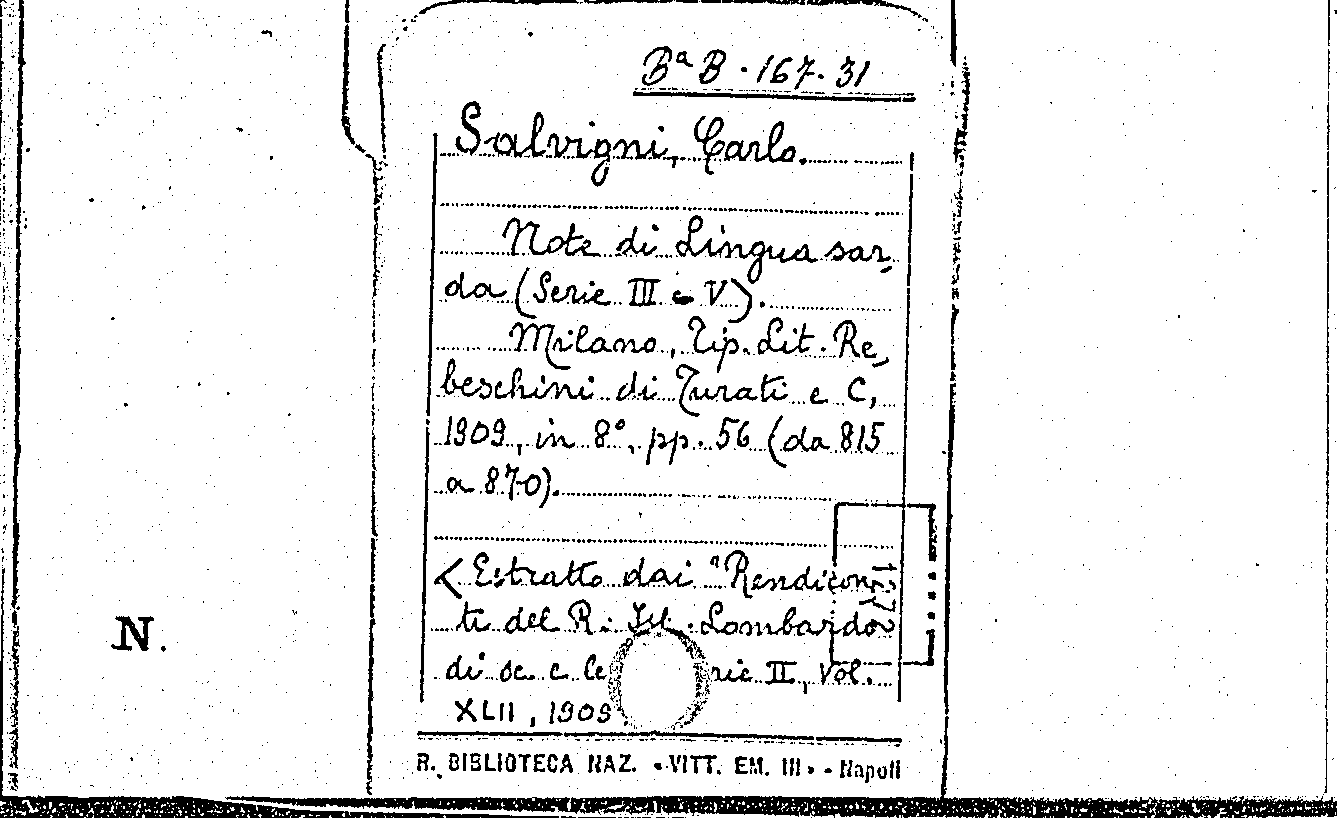 Bª B · 167 · 31
Salvigni, Carlo.
Note di Lingua sar-
da (Serie III e V).
Milano, Tip. Lit. Re-
beschini di Turati e C,
1909, in 8º, pp. 56 (da 815
a 870).
< Estratto dai "Rendicon-
ti del R. Ist. Lombardo
di sc. e le rie II, Vol.
XLII, 1909
1272
N.
R. BIBLIOTECA NAZ. «VITT. EM. III» - Napoli